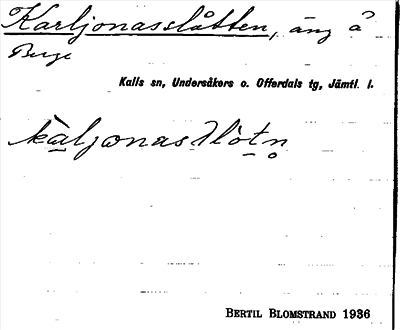 Karljonasslåtten, äng å
Berge
Kalls sn, Undersåkers o. Offerdals tg, Jämtl. l.
kàljonasslòtn
BERTIL BLOMSTRAND 1936